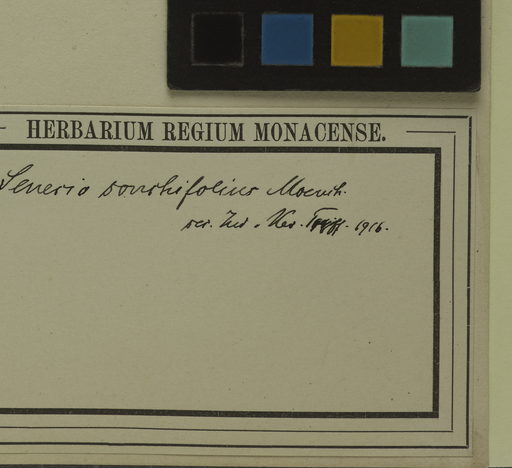 HERBARIUM REGIUM MONACENSE.
Senecio sonchifolius Moench.
1916.